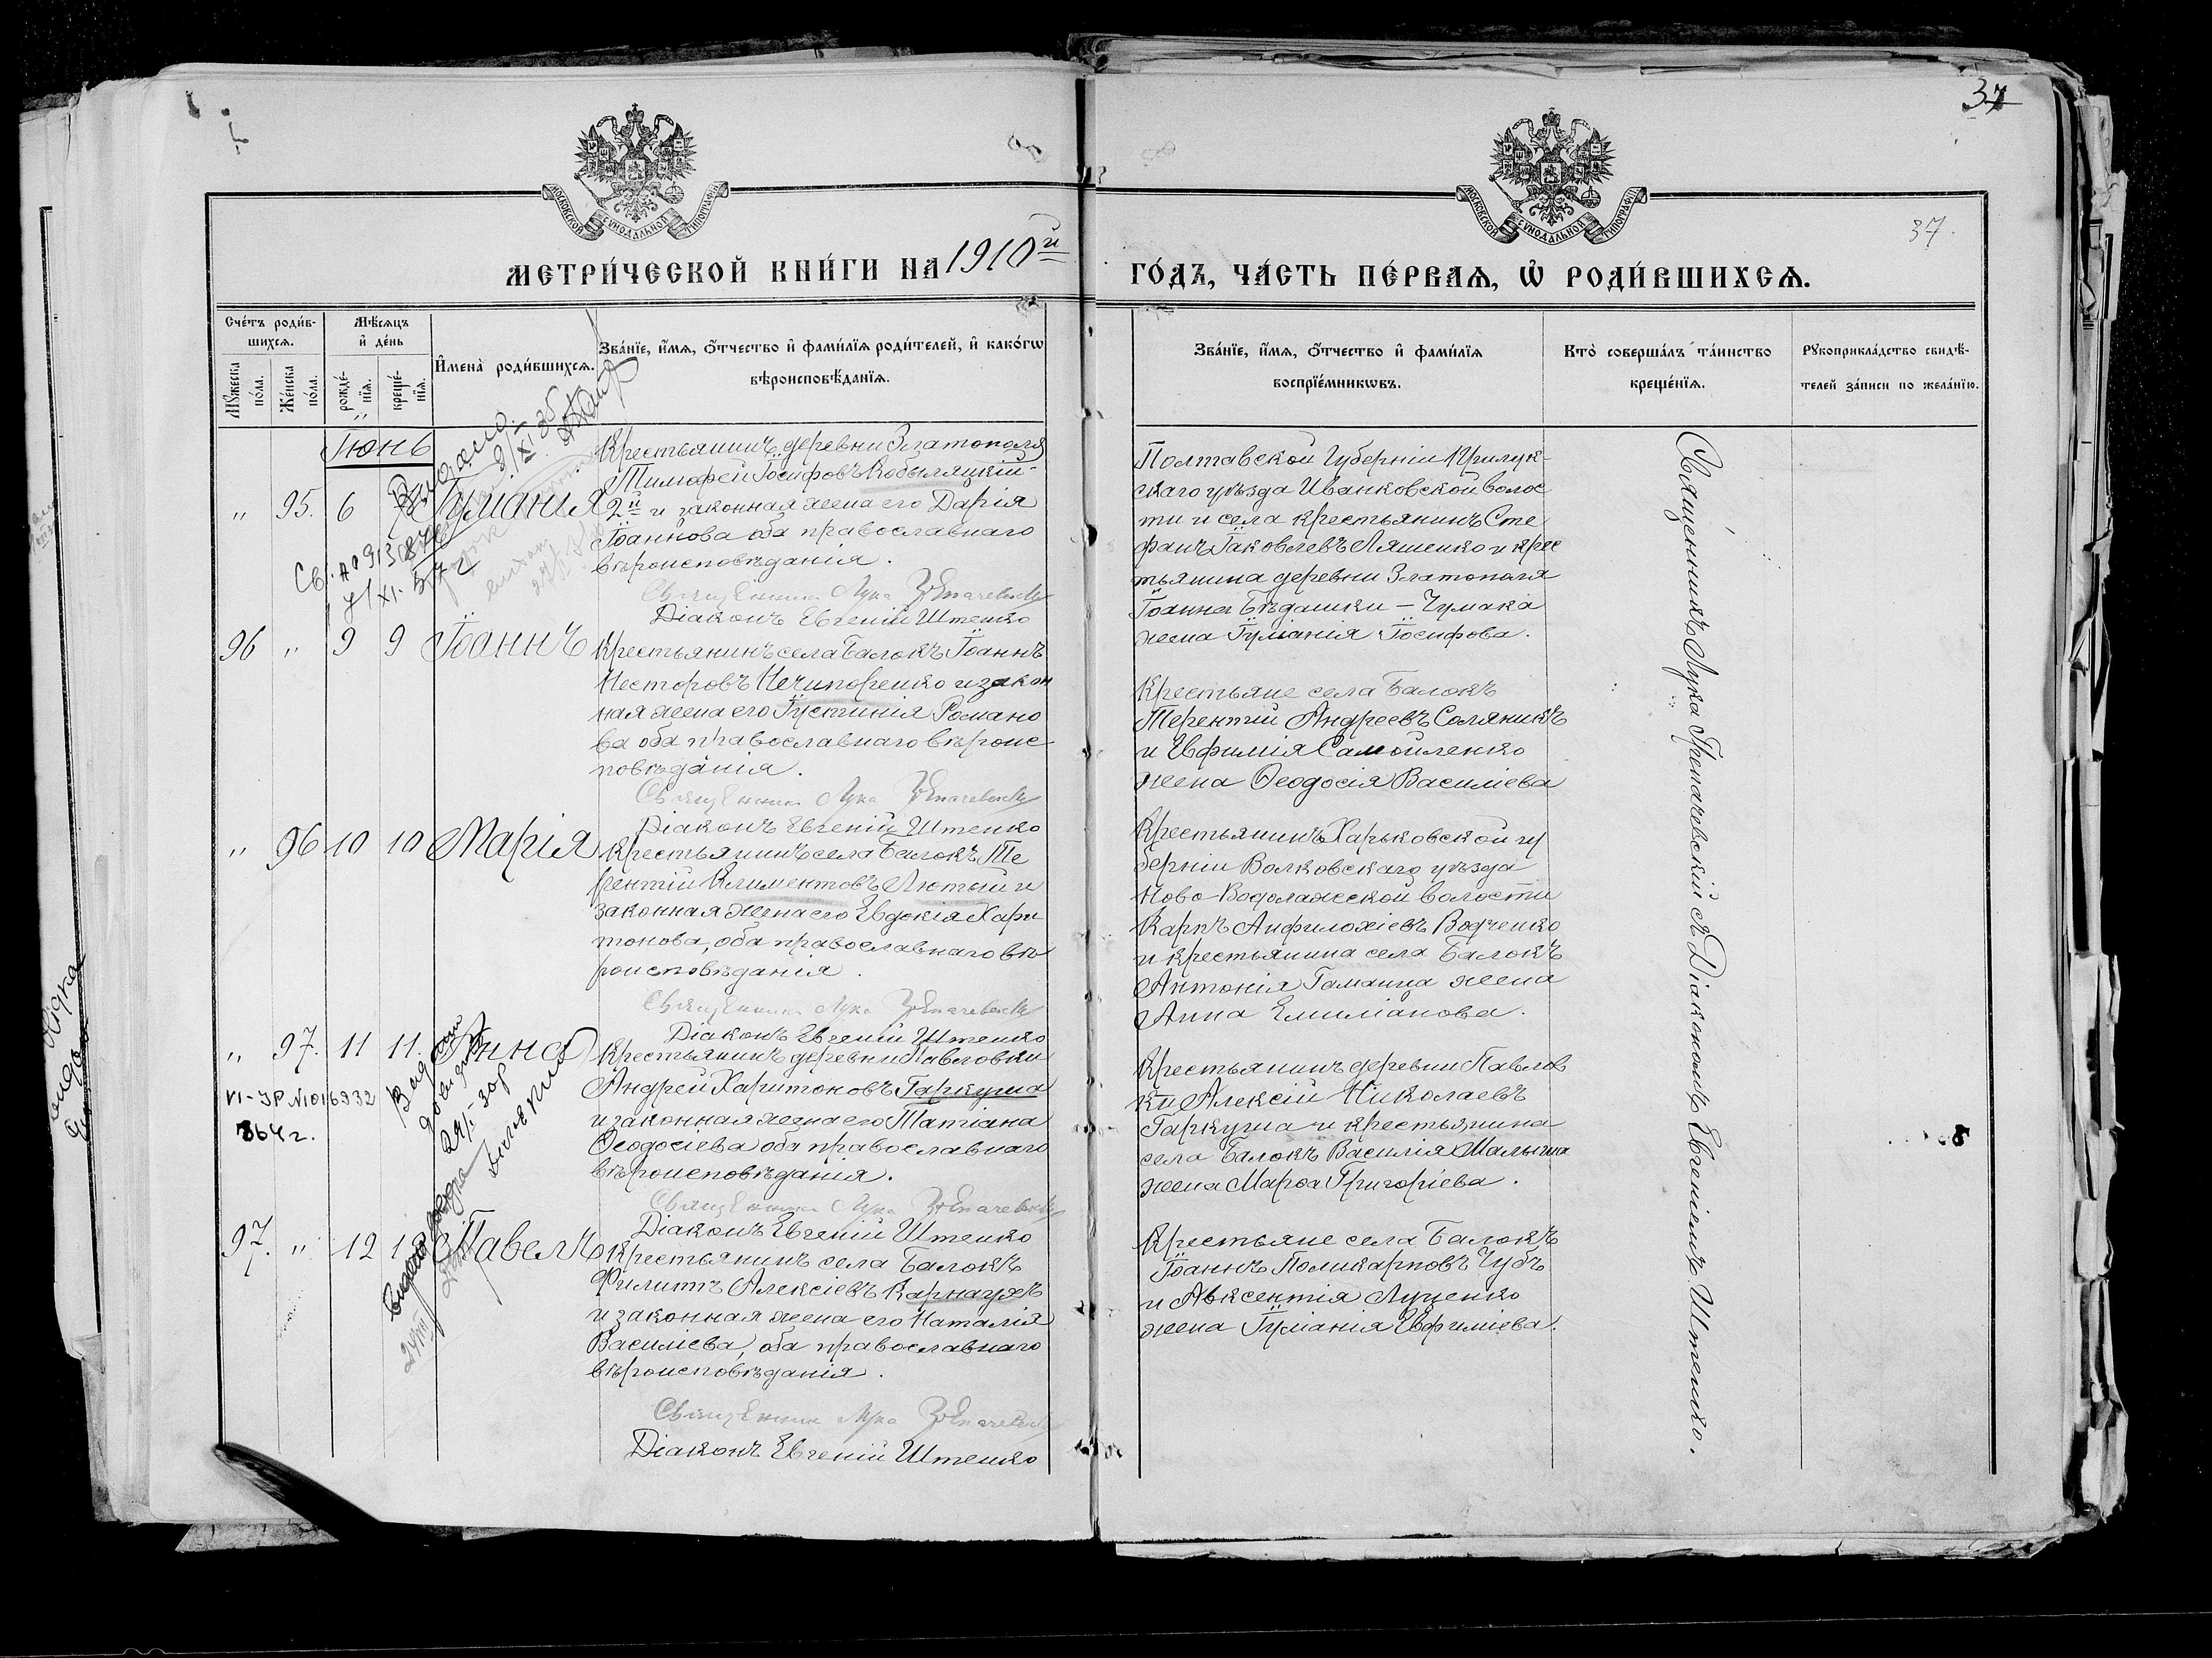 37
37.
МОСКОВСКОЙ СѴНОДАЛЬНОЙ ТИПОГРАФІИ
МОСКОВСКОЙ СѴНОДАЛЬНОЙ ТИПОГРАФІИ
МЕТРИ́ЧЕСКОЙ КНИ́ГИ НА 1910й
ГО́ДЪ, ЧА́СТЬ ПЕ́РВАѦ, Ѡ҆ РОДИ́ВШИХСѦ.
Сче́тъ роди́в-
шихсѧ.
Мꙋ́жеска по́ла.
Же́нска по́ла.
Мѣ́сѧцъ и҆ де́нь
рожде́-нїѧ.
креще́-нїѧ.
И҆мена̀ роди́вшихсѧ.
Зва́нїе, и҆́мѧ, ѻ҆́тчество и҆ фами́лїѧ роди́телей, и҆ како́гѡ
вѣроисповѣ́данїѧ.
Зва́нїе, и҆́мѧ, ѻ҆́тчество и҆ фами́лїѧ
воспрїе́мникѡвъ.
Кто̀ соверша́лъ та́инство
креще́нїѧ.
Рꙋкоприкла́дство свидѣ́-
телей за́писи по жела́нїю.
Іюнь
" 95. 6 Іуліанія
Крестьянинъ деревни Златополя
Тимофей Іосифовъ Кобыляцкій
2й и законная жена его Дарія
Іоаннова оба православнаго
вѣроисповѣданія.
Священникъ Лука
Діаконъ Евгеній Штепко
Полтавской Губерніи Прилук-
скаго уѣзда Иванковской волос
ти и села крестьянинъ Сте
фанъ Іаковлевъ Ляшенко и крес
тьянина деревни Златополя
Іоанна Бѣдашки – Чумака
жена Іуліанія Іосифова.
96 " 9 9 Іоаннъ
Крестьянинъ села Балокъ Іоаннъ
Несторовъ Нечипоренко и закон
ная жена его Іустинія Романо
ва оба православнаго вѣроис
повѣданія.
Священникъ Лука
Діаконъ Евгеній Штепко
Крестьяне села Балокъ
Терентій Андреевъ Соляникъ
и Евфимія Самойленко
жена Ѳеодосія Василіева
" 96 10 10 Марія
Крестьянинъ села Балокъ Те
рентій Климентовъ Лютый и
законная жена его Евдокія Хари
тонова, оба православнаго вѣ
роисповѣданія.
Священникъ Лука
Діаконъ Евгеній Штепко
Крестьянинъ Харьковской гу
берніи Волковскаго уѣзда
Ново-Водолажской волости
Карпъ Амфилохіевъ Водченко
и крестьянина села Балокъ
Антонія Гамаина жена
Анна Емиліанова.
" 97. 11 11. Анна
VI-УР N1016932
864г.
Крестьянинъ деревни Павловки
Андрей Харитоновъ Гаркуша
и законная жена его Татіана
Ѳеодосіева оба православнаго
вѣроисповѣданія.
Священникъ Лука
Діаконъ Евгеній Штепко
Крестьянинъ деревни Павлов
ки Алексій Николаевъ
Гаркуша и крестьянина
села Балокъ Василія Малыша
жена Марѳа Григоріева.
97. " 12 Павелъ
Крестьянинъ села Балокъ
Филиппъ Алексіевъ Карнаухъ
и законная жена его Наталія
Василіева, оба православнаго
вѣроисповѣданія.
Священникъ Лука
Діаконъ Евгеній Штепко
Крестьяне села Балокъ
Іоаннъ Поликарповъ Чубъ
и Авксентія Луценко
жена Іуліанія Евфиміева.
Священникъ Лука Грепачевскій съ Діакономъ Евгеніемъ Штепко.